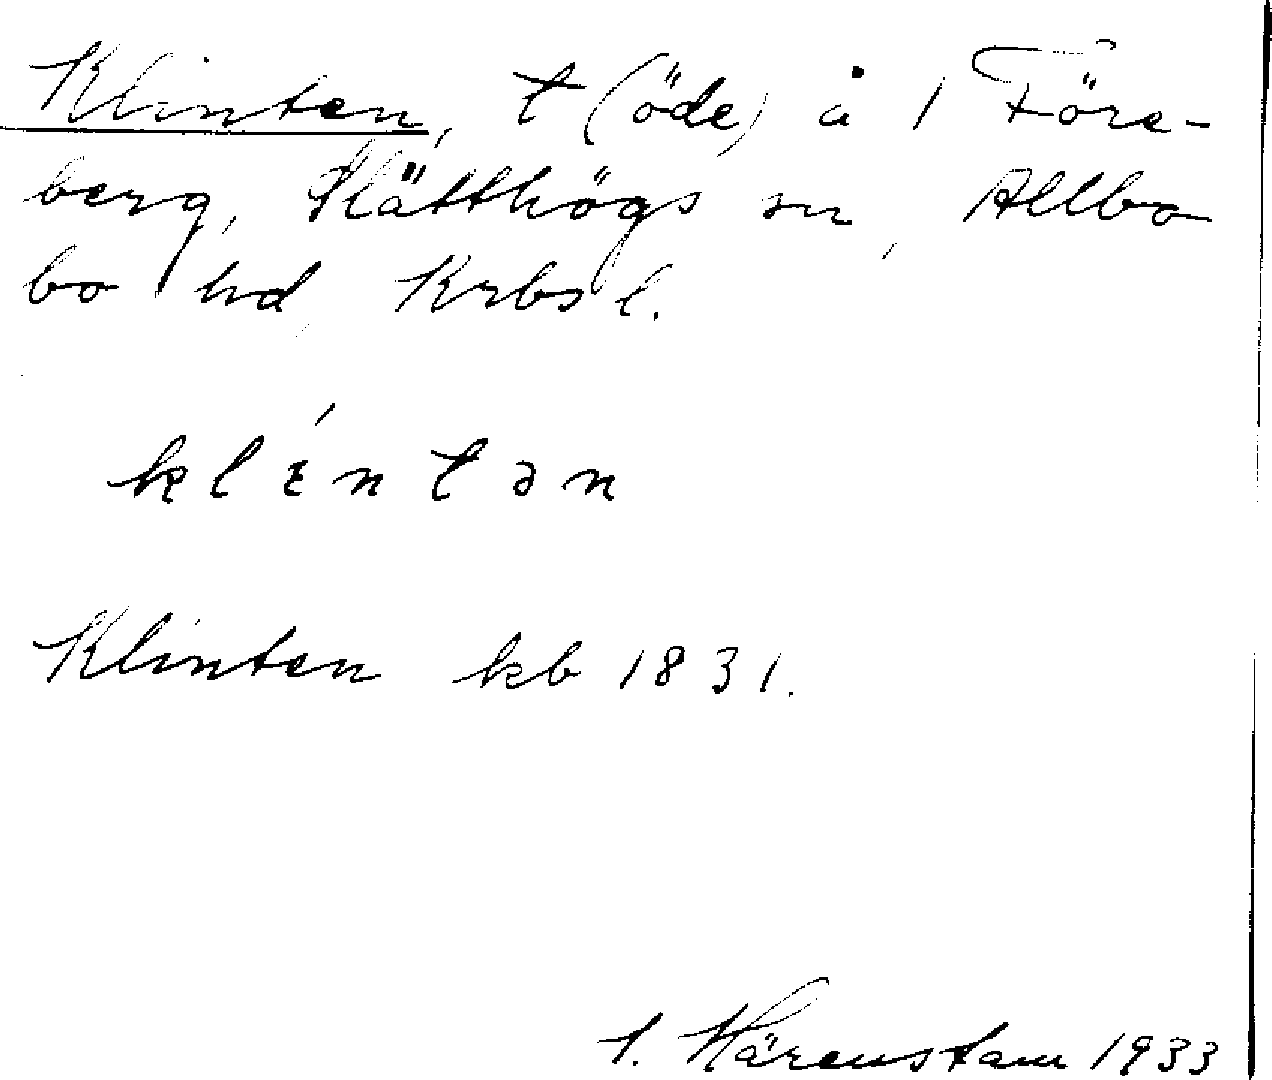 Klinten, t (öde) å 1 Före-
berg, Slätthögs sn, Allbo
bo hd, Krbs l.
klɛ́ntən
Klinten kb 1831.
1. Härenstam 1933